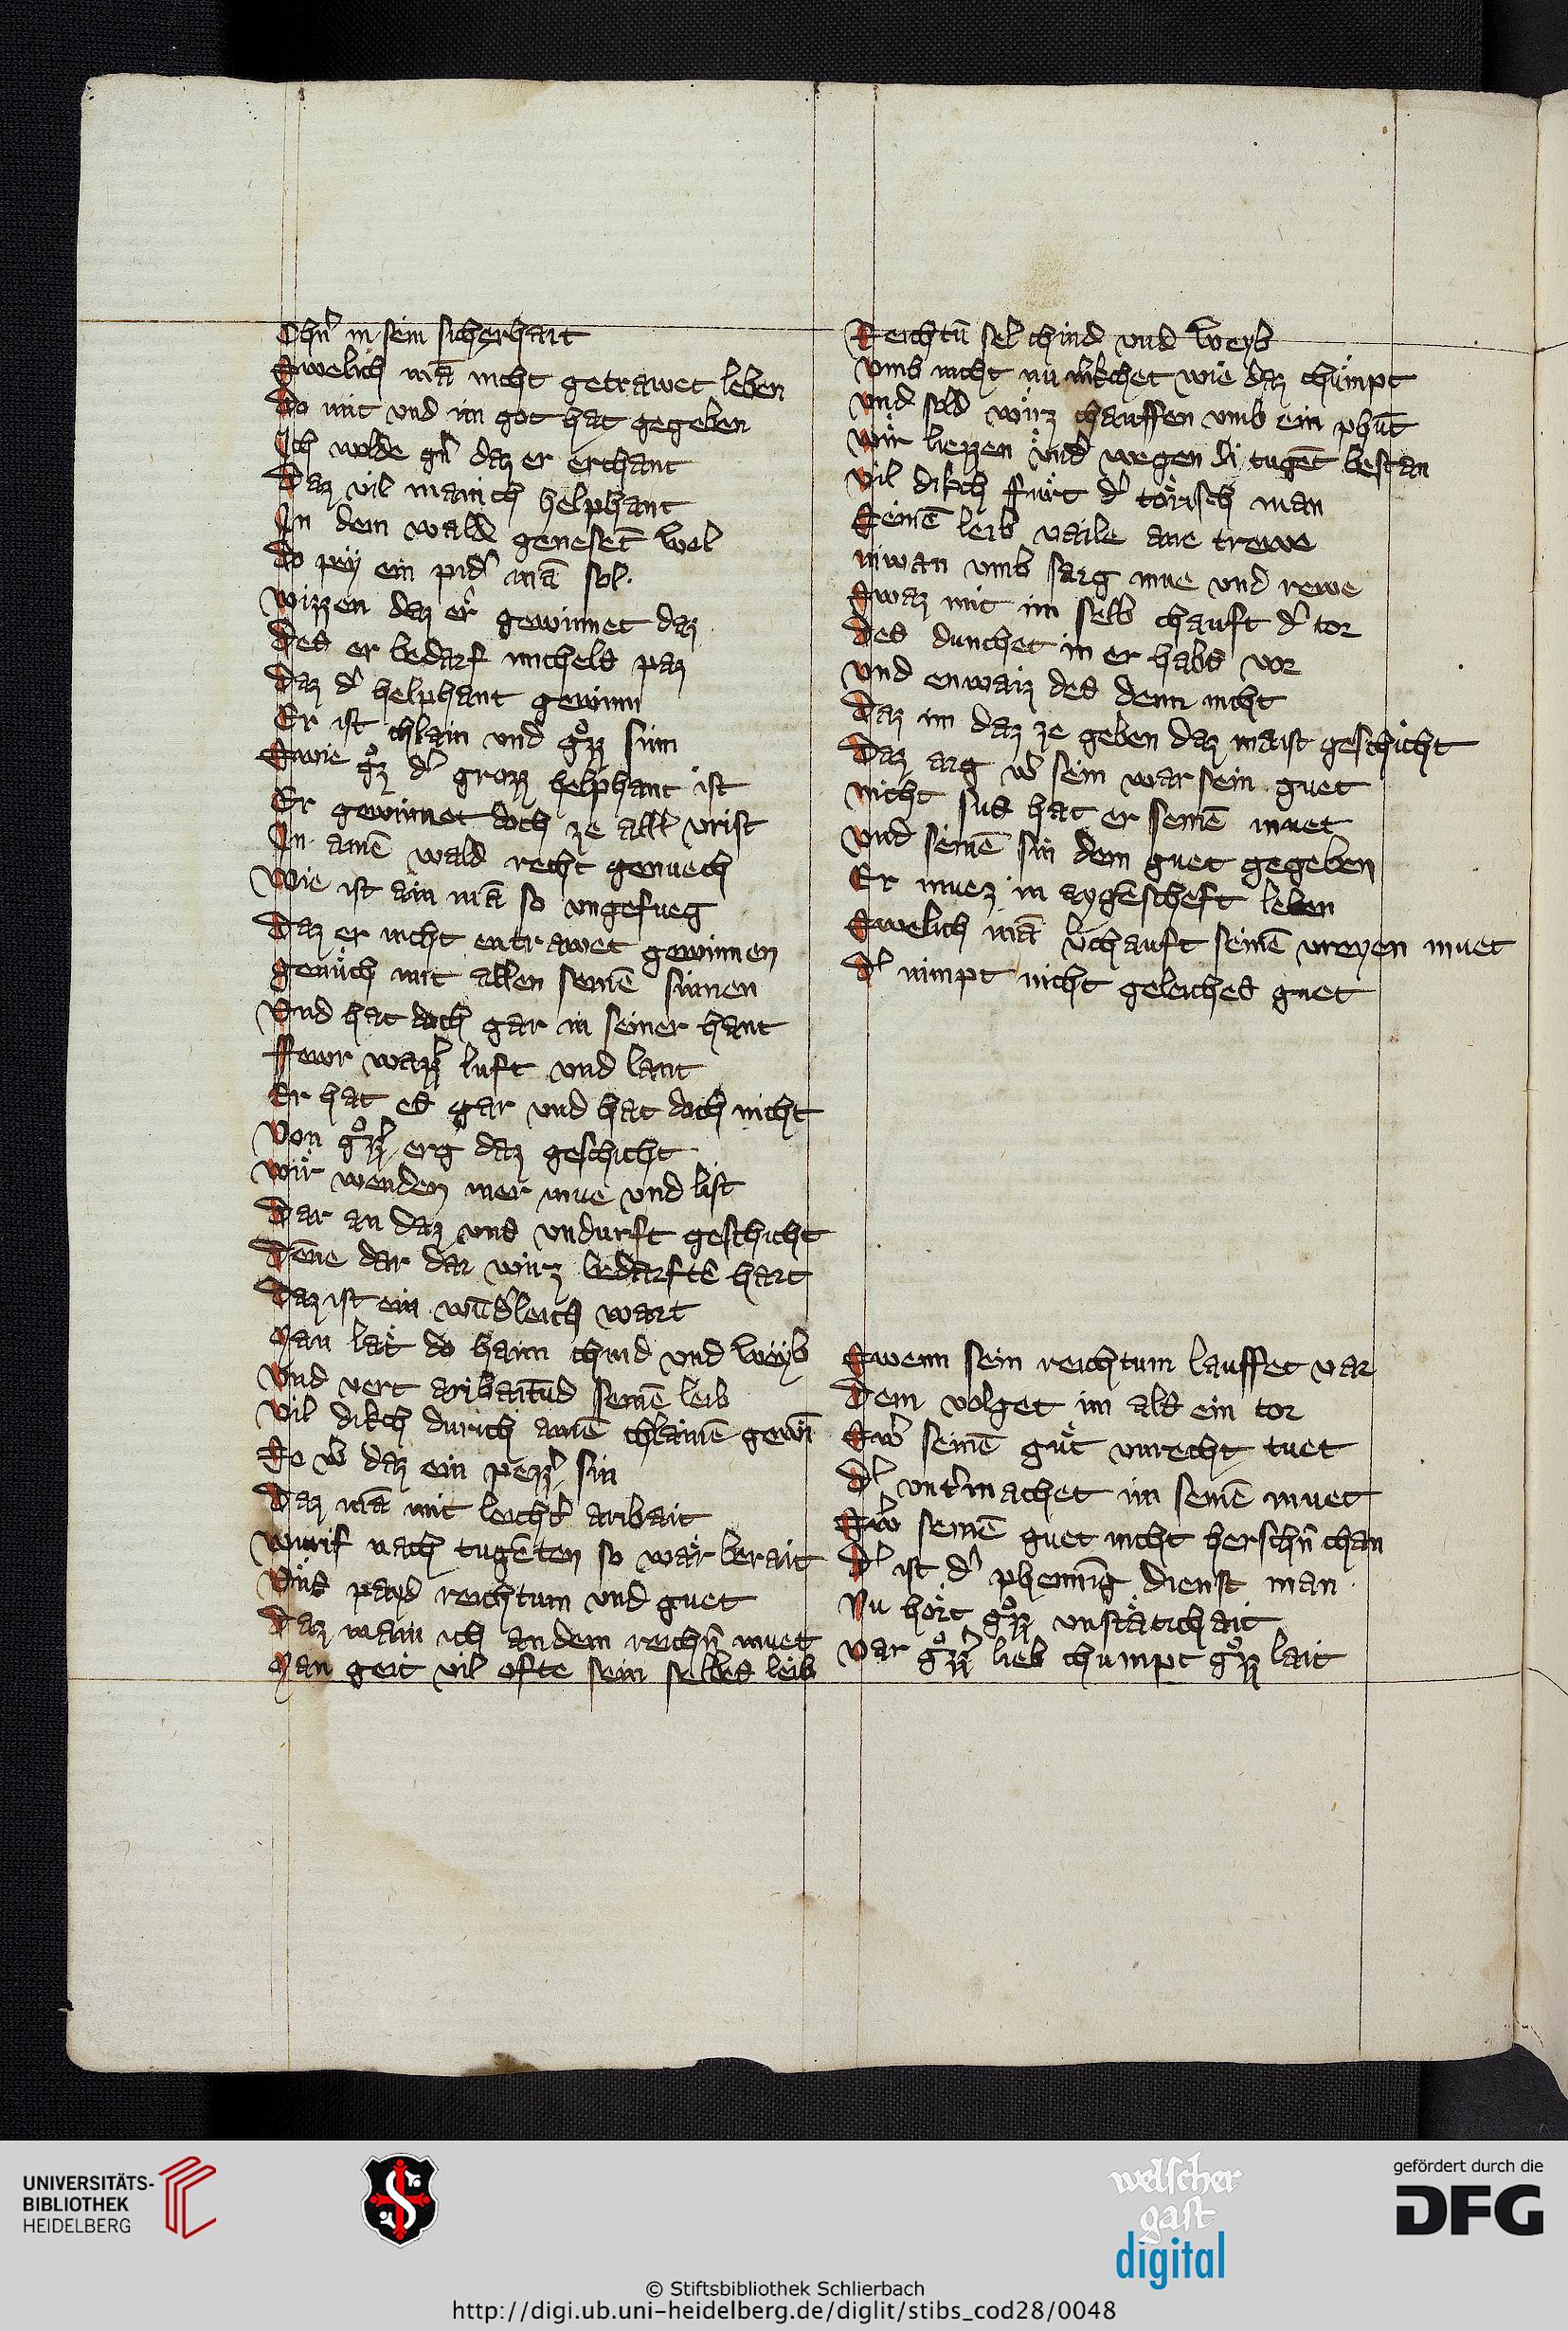 Chñ in sein sicherhait
Swelich mā nicht getrawet leben
Do mit vnd im got hat gegeben
Ich wolde gñ daz er erchant
Daz vil manich helphant
In dem wald genesēt wol
Do pey ein pidˀ mā sol.
wizzen daz er gewinnet daz
Des er bedarf michels paz
Daz dˀ helphant gewinn
Er ist chlain vnd gͦzz sinn
Swie gͦz dˀ grozz helphant ist
Er gewinnet doch ze allˀ vrist
In ainē wald recht genuech
Wie ist ain mā so vngefueg
Daz er nicht entrawet gewinnen
genüch mit allen seinē sinnen
Vnd hat doch gar in seiner hant
ffewr wazzˀ luft vnd lant
Er hat es gar vnd hat doch nicht
Von gͦzzˀ erg daz geschicht
wir wenden mer mue vnd list
Dar an daz vns vndurft geschicht
Dēne dar dar wirz bedarftē hart
Daz ist ein wūdˀleich wart
Man lat do haim chind vnd weyb
Vnd vert aribaitūd seinē leib
Vil dikch durich ainē chlainē gewī
So wˀ daz ein pezzˀ sin
Daz mā mit leichtˀ aribait
wurif nach tugēten so wär berait
Vns payd reichtum vnd guet
Daz main ich an dem reichñ muet
Man geit vil ofte sein selbes leib
Reichtū sel chind vnd weyb
Vmb nicht nu mkchet wie daz chümpt
Vnd sold wirz chauffen vmb ein phūt
wir liezzen vnd wegen di tugēt bestan
Vil dikch fürt dˀ törisch man
Seinē leib vaile ane trewe
niwan vmb sarg mue vnd rewe
Swaz mit im selb chauft dˀ tor
Des dunchet in er habs vor
Vnd enwaiz des denn nicht
Daz im daz ze geben daz maist geschicht
Daz arg wˀ sein war sein guet
nicht sus hat er seinē muet
Vnd seinē sin dem guet gegeben
Er muez in aygēscheft leben
Swelich mā vˀchauft seinē vreyen muet
Dˀ nimpt nicht geleiches guet
Swenn sein reichtum lauffet var
Dem volget im als ein tor
Swˀ seinē güt vnrecht tuet
Dˀ vntˀmachet im seinē muet
Swˀ seinē guet nicht herschñ chan
Dˀ ist dˀ phennīg dienst man
Nu hört gͦzz vnstätichait
Var gͦzzˀ lieb chumpt gͦzz lait
UNIVERSITÄTS-
BIBLIOTHEK
HEIDELBERG
welscher
gast
digital
gefördert durch die
DFG
© Stiftsbibliothek Schlierbach
http://digi.ub.uni-heidelberg.de/diglit/stibs_cod28/0048